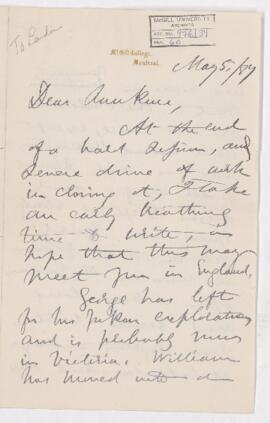 To London
McGILL UNIVERSITY
ARCHIVES
ACC. NO. 976/34
REF. 60
McGill College,
Montreal.
May 5, /87
Dear
At the end
of a hard session, and
severe drive of work
in closing it, I take
an early breathing
time to write, in
hope that this may
meet you in England.
George has left
for his Yukon exploration
and is probably now
in Victoria. William
has moved into a